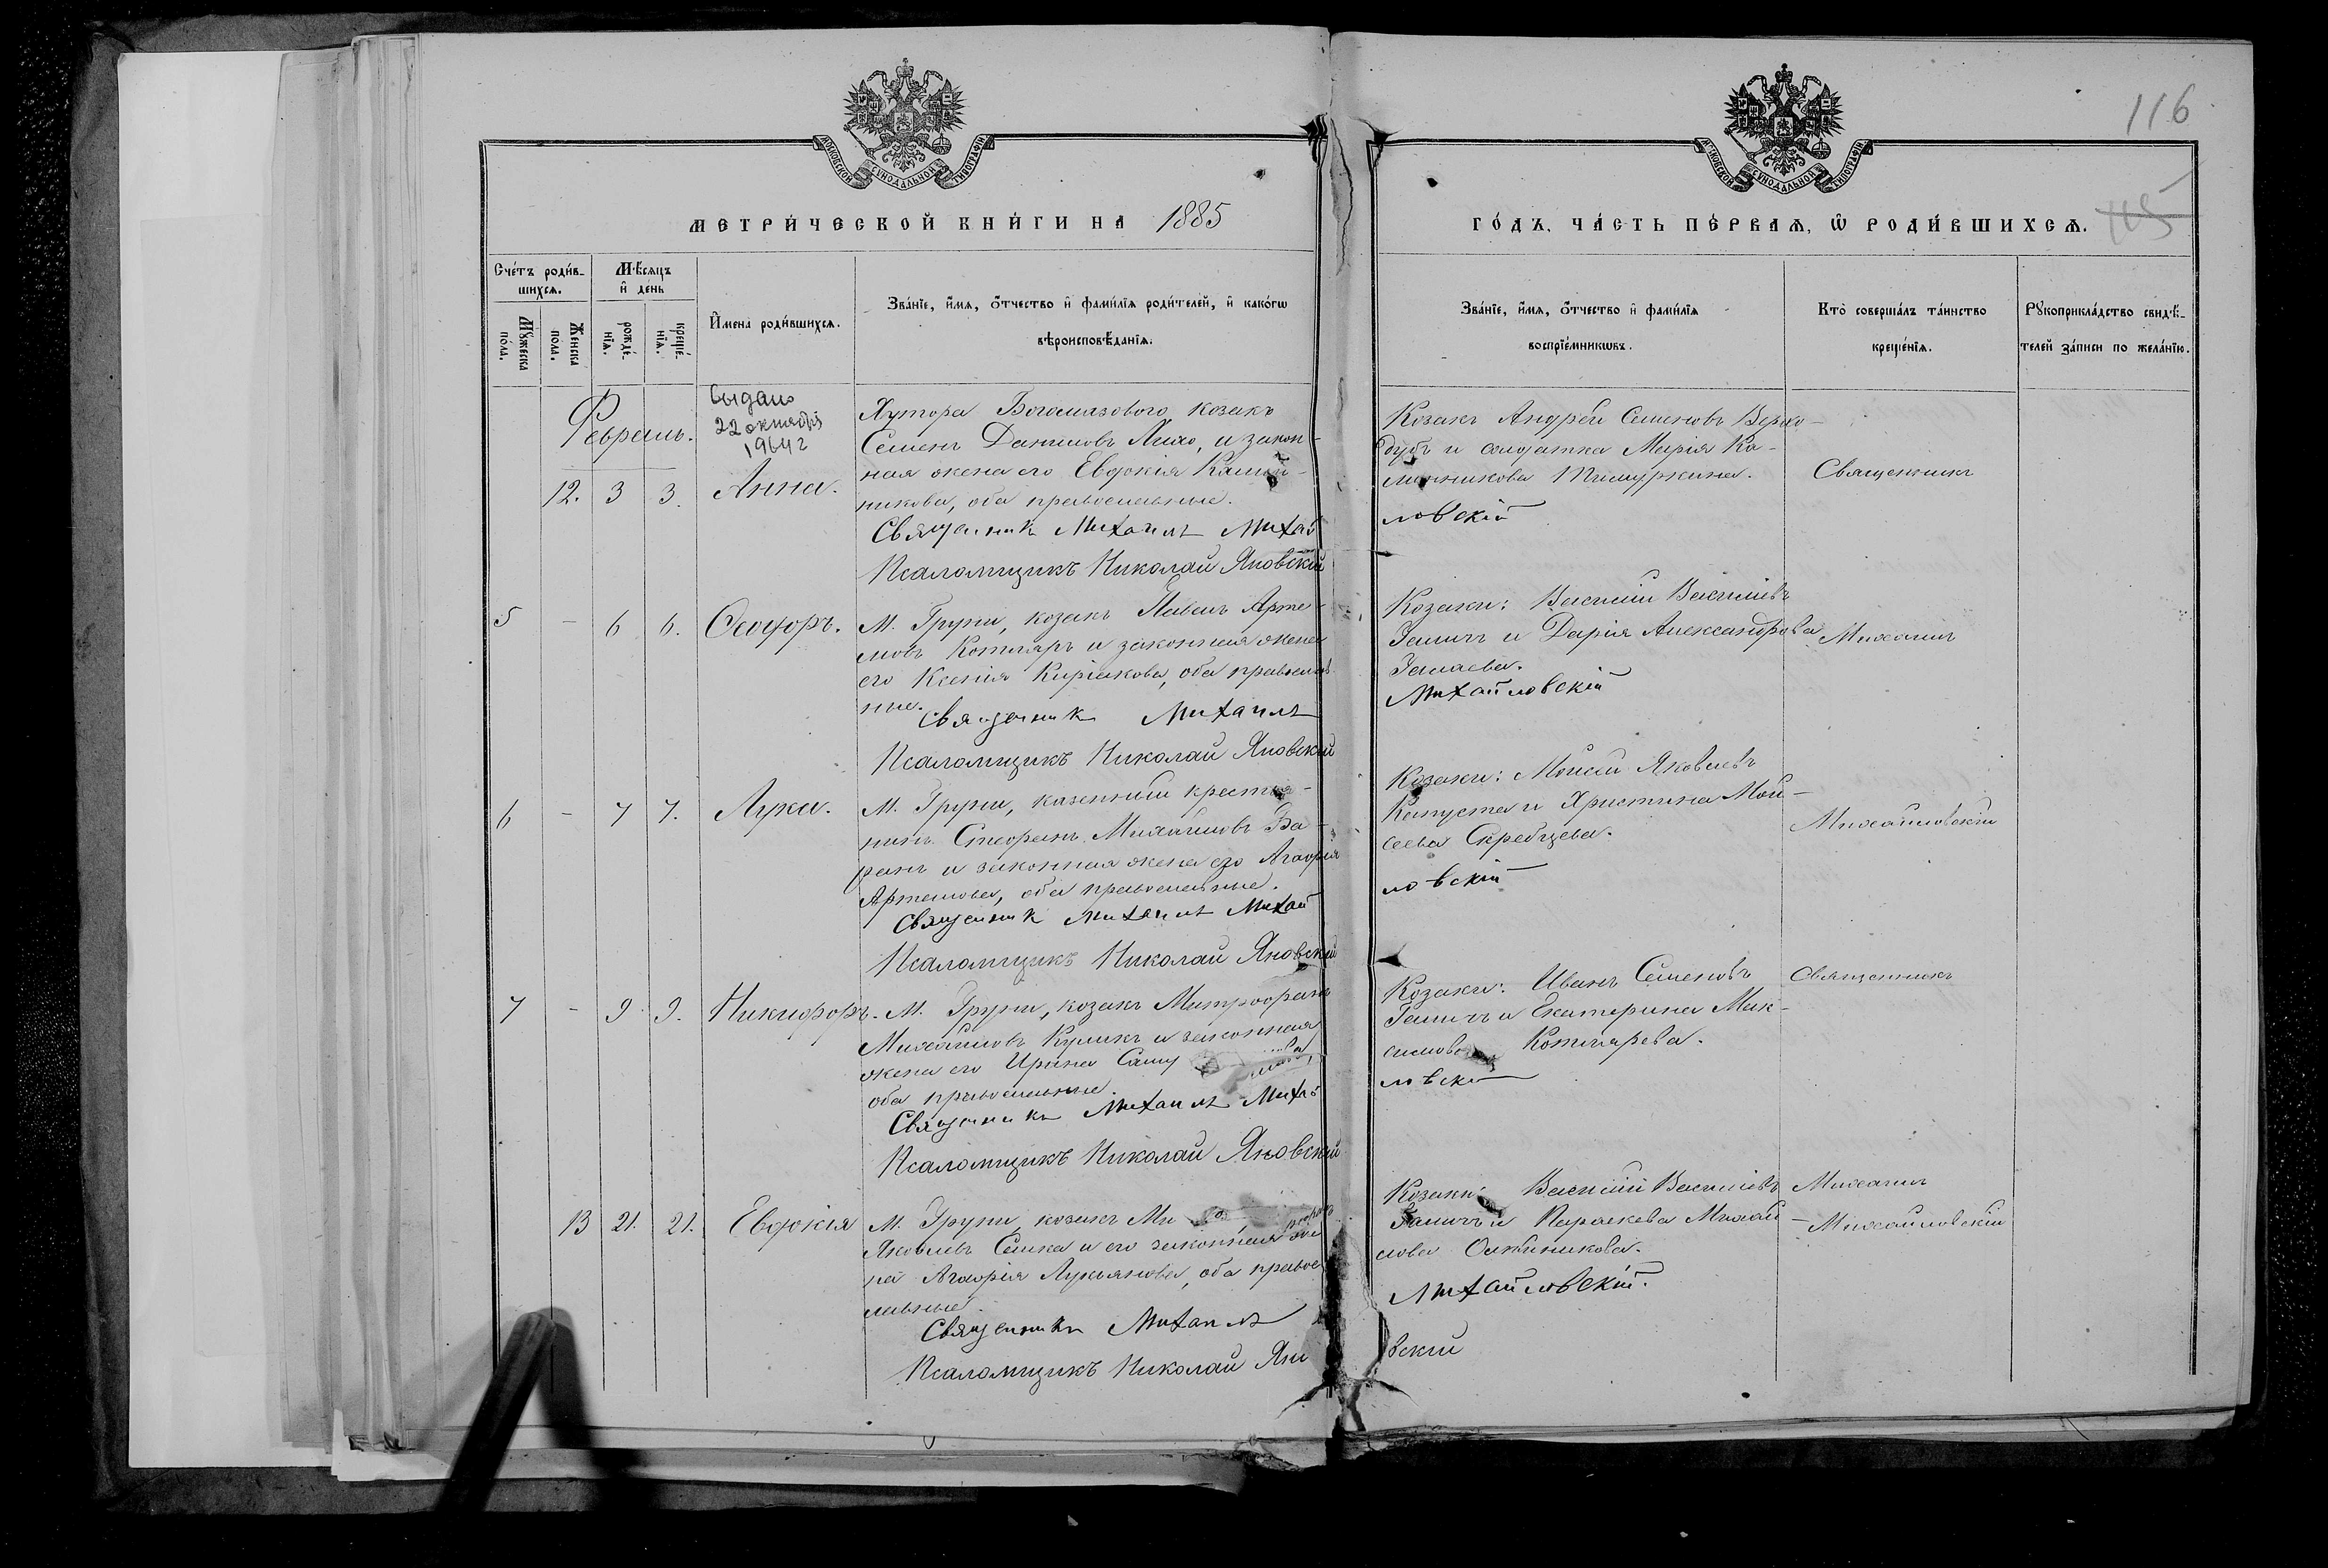 116
115
МОСКОВСКОЙ СѴНОДАЛЬНОЙ ТИПОГРАФІИ
МОСКОВСКОЙ СѴНОДАЛЬНОЙ ТИПОГРАФІИ
МЕТРИ́ЧЕСКОЙ КНИ́ГИ НА 1885
ГО́ДЪ, ЧА́СТЬ ПЕ́РВАѦ, Ѡ҆ РОДИ́ВШИХСѦ.
Сче́тъ роди́в-
шихсѧ.
Мꙋ́жеска
по́ла.
Же́нска
пола.
Мѣ́сѧцъ
и҆ день
рожде́-
нїѧ.
креще́-
нїѧ.
И҆мена̀ роди́вшихсѧ.
Зва́нїе, и҆́мѧ, ѻ҆́тчество и҆ фами́лїѧ роди́телей, и҆ како́гѡ
вѣроисповѣ́данїѧ.
Зва́нїе, и҆́мѧ, ѻ҆́тчество и҆ фами́лїѧ
воспрїе́мникѡвъ.
Кто̀ соверша́лъ та́инство
креще́нїѧ.
Рꙋкоприкла́дство свидѣ́-
телей за́писи по жела́нїю.
Февраль.
Выдано
22 октября
1964 г
12. 3 3. Анна.
Хутора Богомазового, козакъ
Семенъ Даниловъ Лихо, и закон-
ная жена его Евдокія Калин-
никова, оба православные.
Священникъ Михаилъ Михай
Псаломщикъ Николай Яновскій
Козакъ Андрей Семеновъ Верно-
дубъ и солдатка Марія Ка-
линникова
ловскій
Священникъ
5 - 6 6. Ѳеодоръ.
М. Груни, козакъ Павелъ Арте-
мовъ Котляръ и законная жена
его Ксенія Киріакова, оба православ-
ные.
Священникъ Михаилъ
Псаломщикъ Николай Яновскій
Козаки: Василій Васильевъ
и Дарія Александрова
Михайловскій
Михаилъ
6 - 7 7. Лука.
М. Груни, казенный крестья-
нинъ Стефанъ Михайловъ Ба-
ранъ и законная жена его Агафія
Артемова, оба православные.
Священникъ Михаилъ Михай
Псаломщикъ Николай Яновскій
Козаки: Моисей Яковлевъ
Капуста и Христина Мои-
сеева Скребцева.
ловскій
Михайловскій
7 - 9 9. Никифоръ.
М. Груни, козакъ Митрофанъ
Михайловъ Куликъ и законная
жена его Ирина
оба православные.
Священникъ Михаилъ Михай
Псаломщикъ Николай Яновскій
Козаки: Иванъ Семеновъ
и Екатерина Мак-
симова Котлярева.
ловскій
Священникъ
13 21. 21. Евдокія
М. Груни, козакъ
Яковлевъ и его законная же
на Агафія Лукьянова, оба право
славные.
Священникъ Михаилъ
Псаломщикъ Николай Яно
Козаки: Василій Васильевъ
и Параскева Михай
лова Олейникова.
Михайловскій.
вскій
Михаилъ
Михайловскій